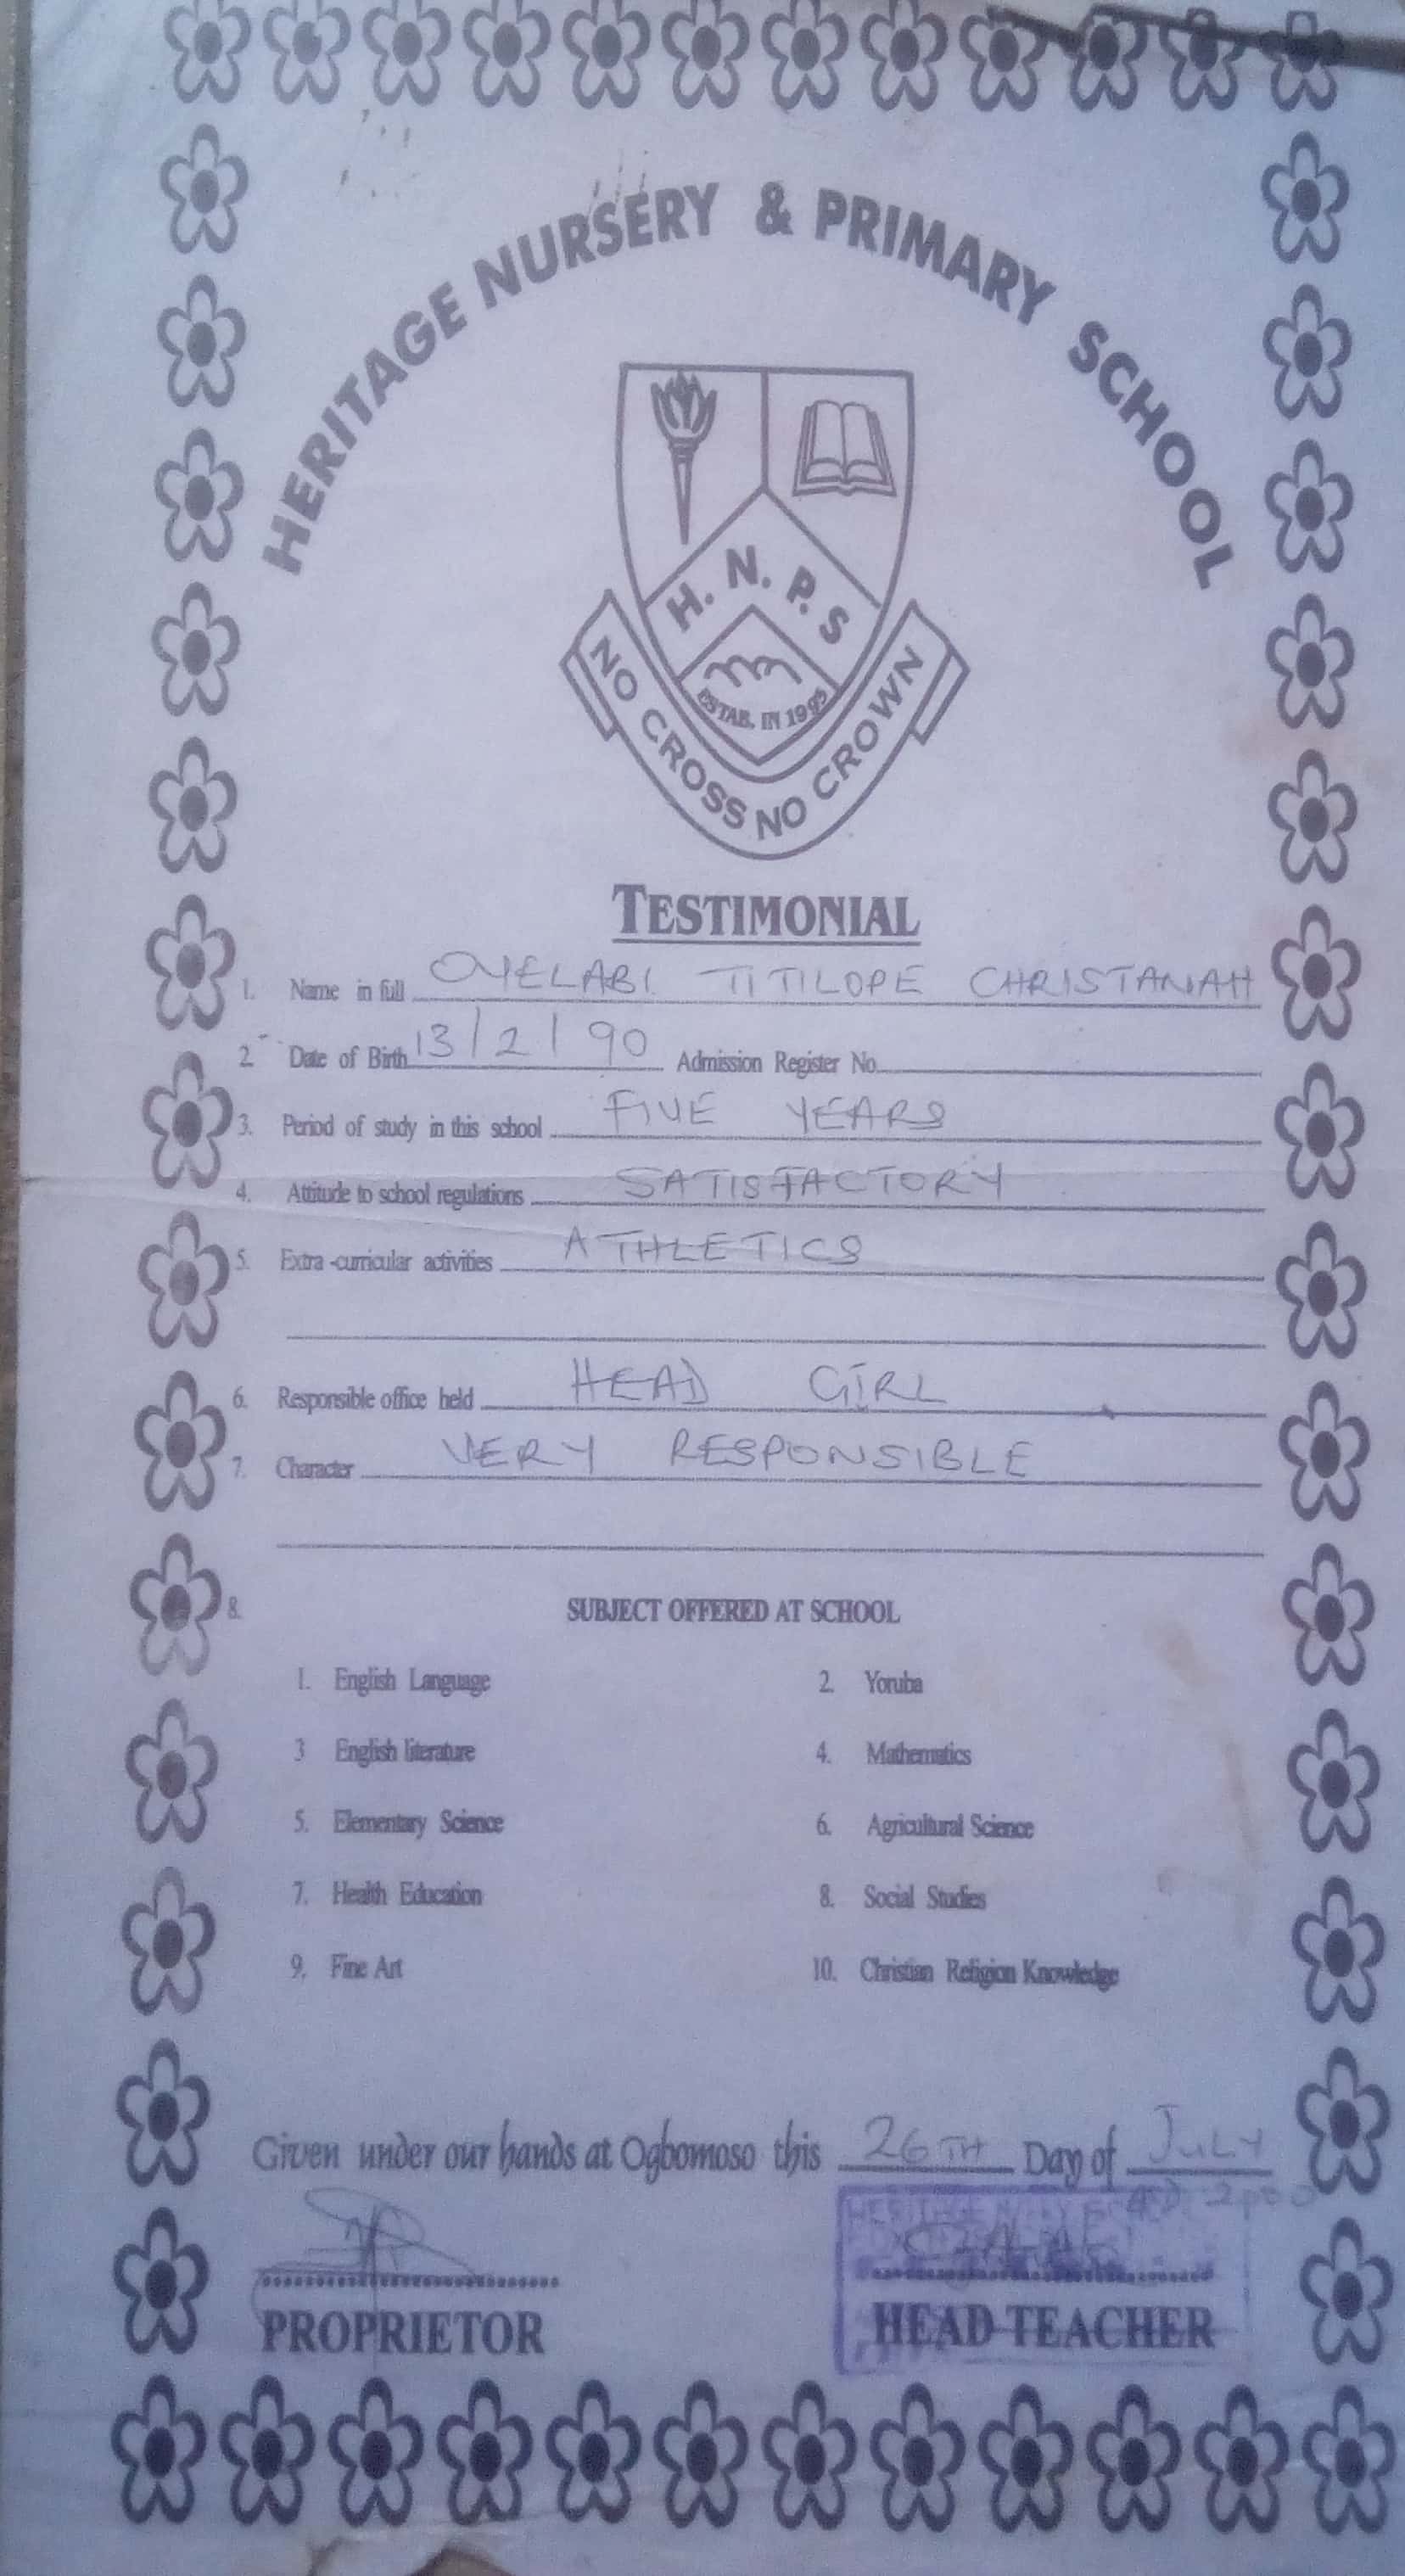 HERITAGE NURSERY & PRIMARY SCHOOL
H. N. P. S
ESTAB. IN 1995
NO CROSS NO CROWN
TESTIMONIAL
1. Name in full OYELABI TITILOPE CHRISTANAH
2. Date of Birth 13/2/90 Admission Register No.
3. Period of study in this school FIVE YEARS
4. Attitude to school regulations SATISFACTORY
5. Extra-curricular activities ATHLETICS
6. Responsible office held HEAD GIRL
7. Character VERY RESPONSIBLE
8. SUBJECT OFFERED AT SCHOOL
1. English Language 2. Yoruba
3 English literature 4. Mathematics
5. Elementary Science 6. Agricultural Science
7. Health Education 8. Social Studies
9. Fine Art 10. Christian Religion Knowledge
Given under our hands at Ogbomoso this 26TH Day of JULY
A.D. 2000
PROPRIETOR HEAD TEACHER